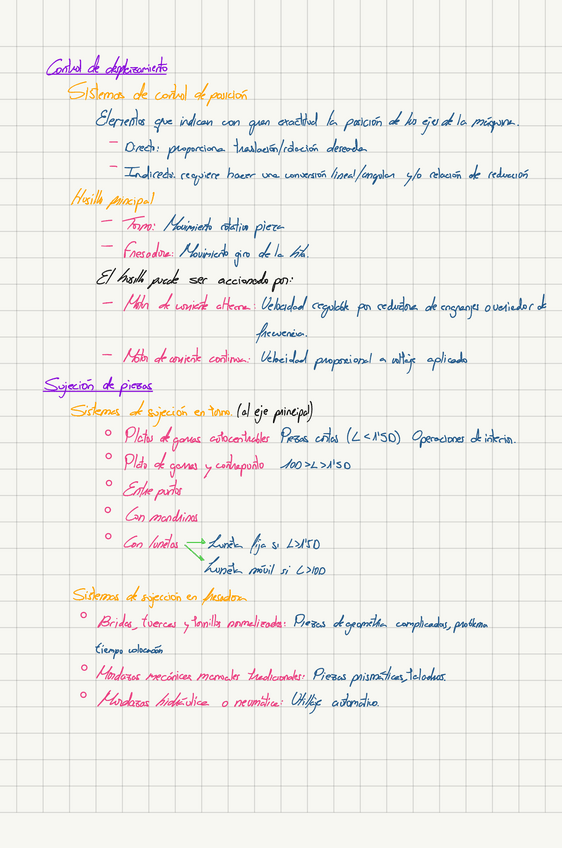 Control de desplazamiento
Sistemas de control de posición
Elementos que indican con gran exactitud la posición de los ejes de la máquina.
— Directo: proporciona traslación/rotación deseada
— Indirecto: requiere hacer una conversión lineal/angular y/o relación de reducción
Husillo principal
— Torno: Movimiento rotativo pieza
— Fresadora: Movimiento giro de la hta.
El husillo puede ser accionado por:
— Motor de corriente alterna: Velocidad regulable por reductora de engranjes o variador de
frecuencia.
— Motor de corriente continua: Velocidad proporcional a voltaje aplicado
Sujeción de piezas
Sistemas de sujeción en torno. (al eje principal)
○ Platos de garras autocentrables Piezas cortas (L<1'5D) Operaciones de interior.
○ Plato de garras y contrapunto 10D>L>1'5D
○ Entre puntos
○ Con mandrinos
○ Con lunetas → Luneta fija si L>1'5D
Luneta móvil si L>10D
Sistemas de sujección en fresadora
○ Bridas, tuercas y tornillos normalizados: Piezas de geometría complicadas, problema
tiempo colocación
○ Mordazas mecánicas manuales tradicionales: Piezas prismáticas, taladros.
○ Mordazas hidráulica o neumática: Utillaje automático.